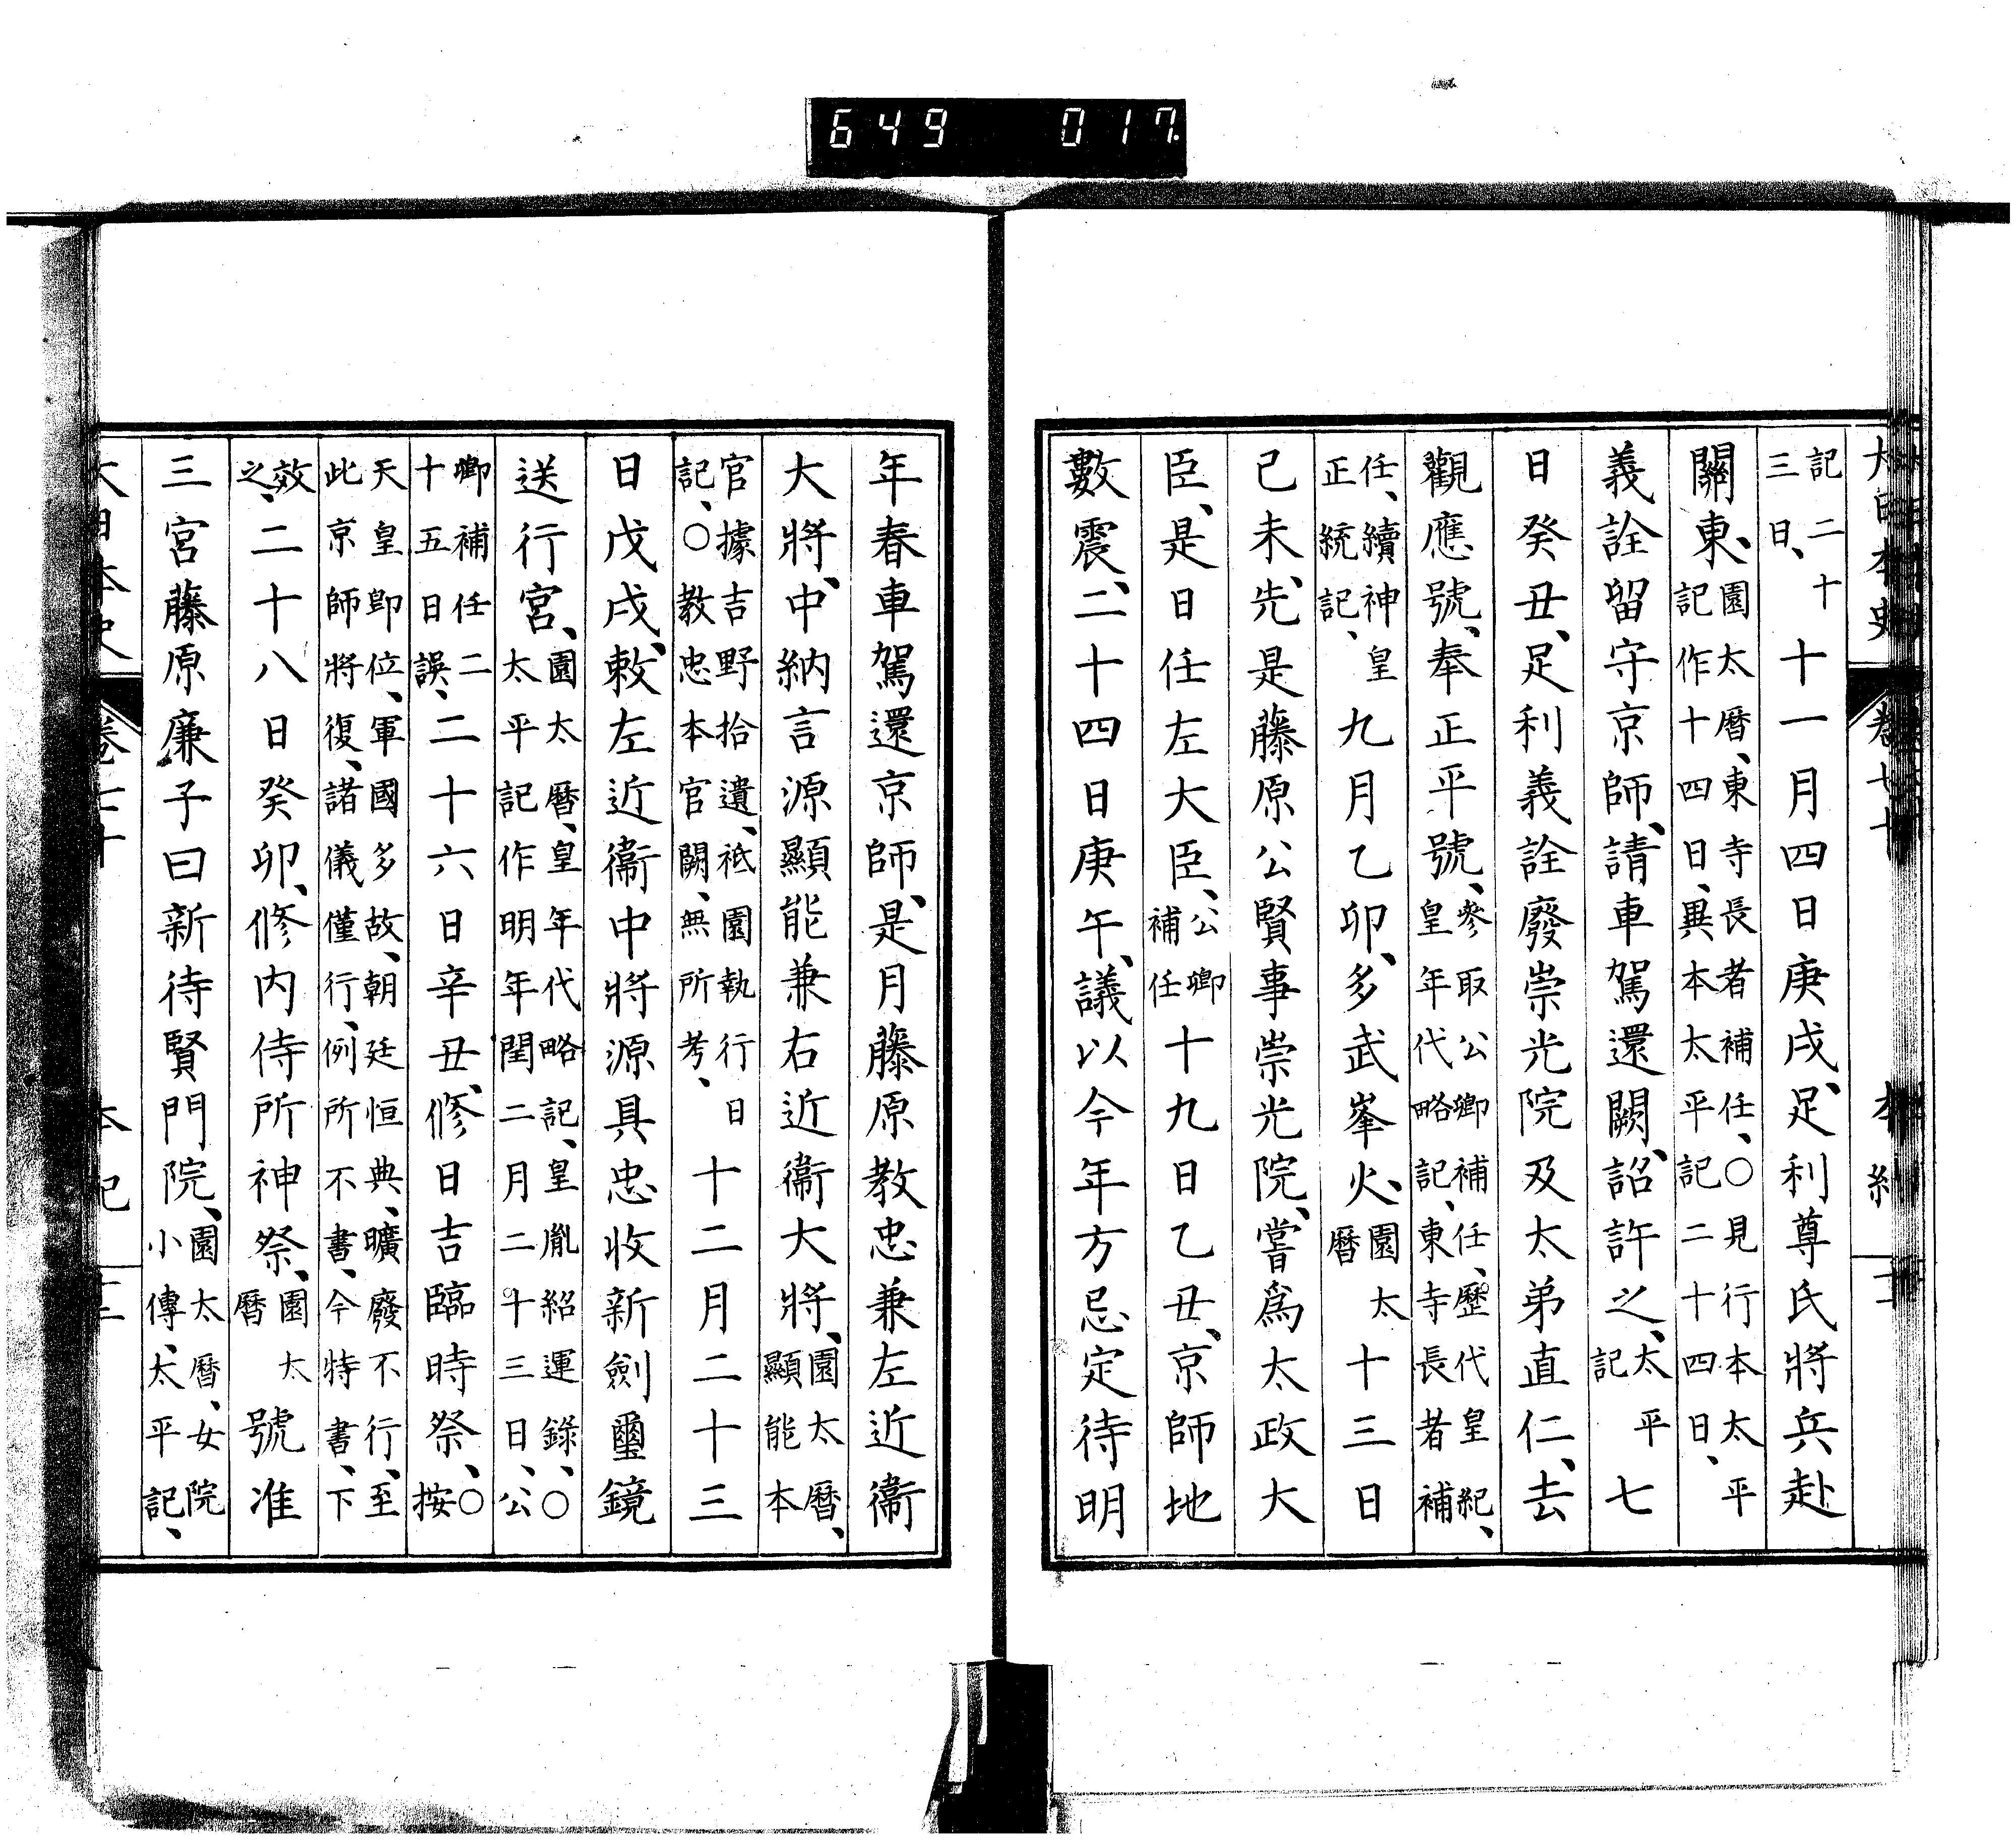 649 017
大日本史 卷七十 本紀
記二十
三日、
十一月四日庚戌、足利尊氏將兵赴
關東、
園太曆、東寺長者補任、○見行本太平
記作十四日、異本太平記二十四日、
義詮留守京師、請車駕還闕、詔許之、
太平
記
七
日癸丑、足利義詮廢崇光院及太弟直仁、去
觀應號、奉正平號、
參取公卿補任、歷代皇紀、
皇年代略記、東寺長者補
任、續神皇
正統記、
九月乙卯、多武峯火、
園太
曆
十三日
己未、先是藤原公賢事崇光院、嘗爲太政大
臣、是日任左大臣、
公卿
補任
十九日乙丑、京師地
數震、二十四日庚午、議以今年方忌定待明
年春車駕還京師、是月藤原教忠兼左近衞
大將、中納言源顯能兼右近衞大將、
園太曆、
顯能本
官據吉野拾遺、祇園執行日
記、○教忠本官闕、無所考、
十二月二十三
日戊戌、敕左近衞中將源具忠收新劍璽鏡
送行宮、
園太曆、皇年代略記、皇胤紹運錄、○
太平記作明年閏二月二十三日、公
卿補任二
十五日誤、
二十六日辛丑、修日吉臨時祭、
○
按
天皇卽位、軍國多故、朝廷恒典、曠廢不行、至
此京師將復、諸儀僅行、例所不書、今特書、下
效
之、
二十八日癸卯、修内侍所神祭、
園太
曆
號准
三宮藤原廉子曰新待賢門院、
園太曆、女院
小傳、太平記、
大日本史 卷七十 本紀